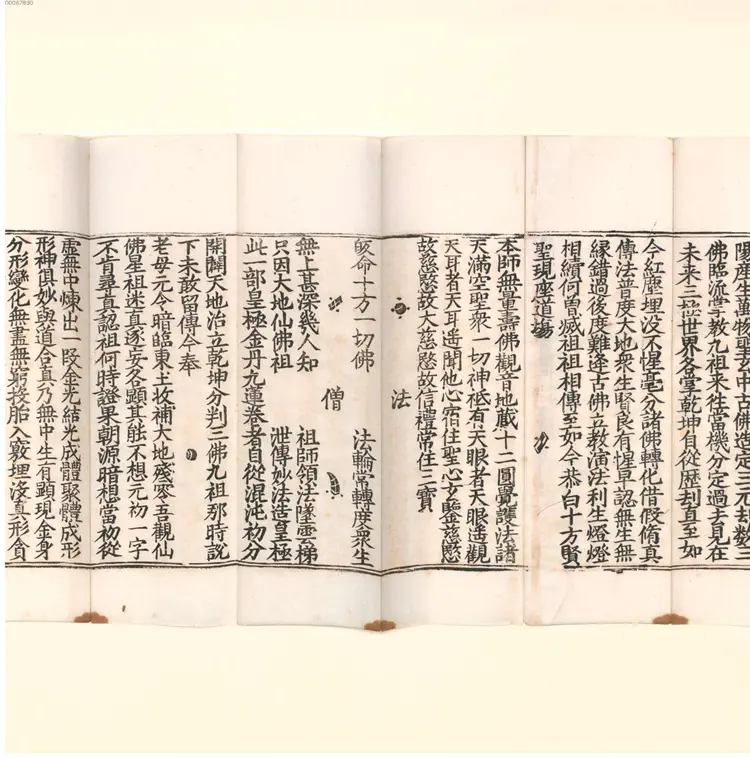 00067880
陽產生萬物聖玄中古佛造定三元劫數三
佛臨流掌教九祖來往當機分定過去見在
未來三極世界各掌乾坤自從歷刦直至如
今紅塵埋没不惺毫分諸佛轉化借假脩真
傳法普度大地衆生賢良有惺早認無生無
緣錯過後度難逢古佛立教演法利生燈燈
相續何曾㓕祖祖相傳至如今恭白十方賢
聖現座道場
本師無量壽佛觀音地藏十二圓覺護法諸
天滿空聖衆一切神祇有天眼者天眼遥觀
天耳者天耳遥聞他心宿住聖心少鑒慈愍
故慈愍故大慈愍故信禮常住三寶
法
皈命十方一切佛 法輪常轉度衆生
僧
無上甚深幾人知 祖師領法墜雲梯
只因大地仙佛祖 泄傳妙法造皇極
此一部皇極金丹九蓮卷者自從混沌初分
開闢天地治立乾坤分判三佛九祖那時說
下未敢留傳今奉
老母元令暗臨東土收補大地殘零吾觀仙
佛星祖迷真逐妄各顕其能不想元初一字
不肯尋真認祖何時證果朝源暗想當初從
虛無中煉出一叚金光結光成體聚體成形
形神俱妙與道合真乃無中生有顕現金身
分形變化無盡無窮投胎入竅埋没真形貪